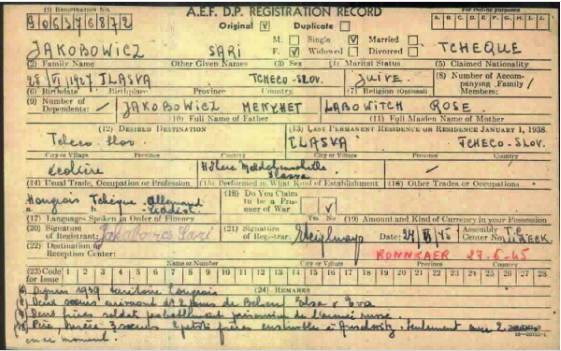 (1) REGISTRATION NO. A.E.F. D.P. REGISTRATION RECORD For coding purposes
Original Duplicate A. B. C. D. E. F. G. H. I. J.
M. Single Married
JAKOBOWICZ SARI F. Widowed Divorced TCHEQUE
(2) Family Name Other Given Names (3) Sex (4) Marital Status (5) Claimed Nationality
28 VI 1927 ILASVA TCHECO-SLOV. Juive (8) Number of Accompanying Family Members:
(6) Birthdate Birthplace Province Country (7) Religion (Optional)
(9) Number of Dependents: JAKOBOWICZ LABOWITCH ROSE
(10) Full Name of Father (11) Full Maiden Name of Mother
(12) DESIRED DESTINATION (13) LAST PERMANENT RESIDENCE OR RESIDENCE JANUARY 1, 1938.
Tcheco slov ILASVA TCHECO-SLOV.
City or Village Province Country City or Village Province Country
Ecolière
(14) Usual Trade, Occupation or Profession (15) Performed in What Kind of Establishment (16) Other Trades or Occupations
Hongrois Tchèque Allemand (18) Do You Claim to be a Prisoner of War
a. b. c. Yes No
(17) Languages Spoken in Order of Fluency (19) Amount and Kind of Currency in your Possession
(20) Signature of Registrant: Sari (21) Signature of Registrar: Date: Assembly Center No.
(22) Destination or Reception Center: 27-6-45
Name or Number City or Village Province Country
(23) Code for Issue 1 2 3 4 5 6 7 8 9 10 11 12 13 14 15 16 17 18 19 20 21 22 23 24 25 26 27 28
(24) REMARKS
Depuis 1939 territoire hongrois
Deux soeurs
Deux frères soldats probablement prisonniers de l'armée russe.
Père, 3 soeurs 2 petits frères ensemble à Auschwitz, seulement
en ce moment.